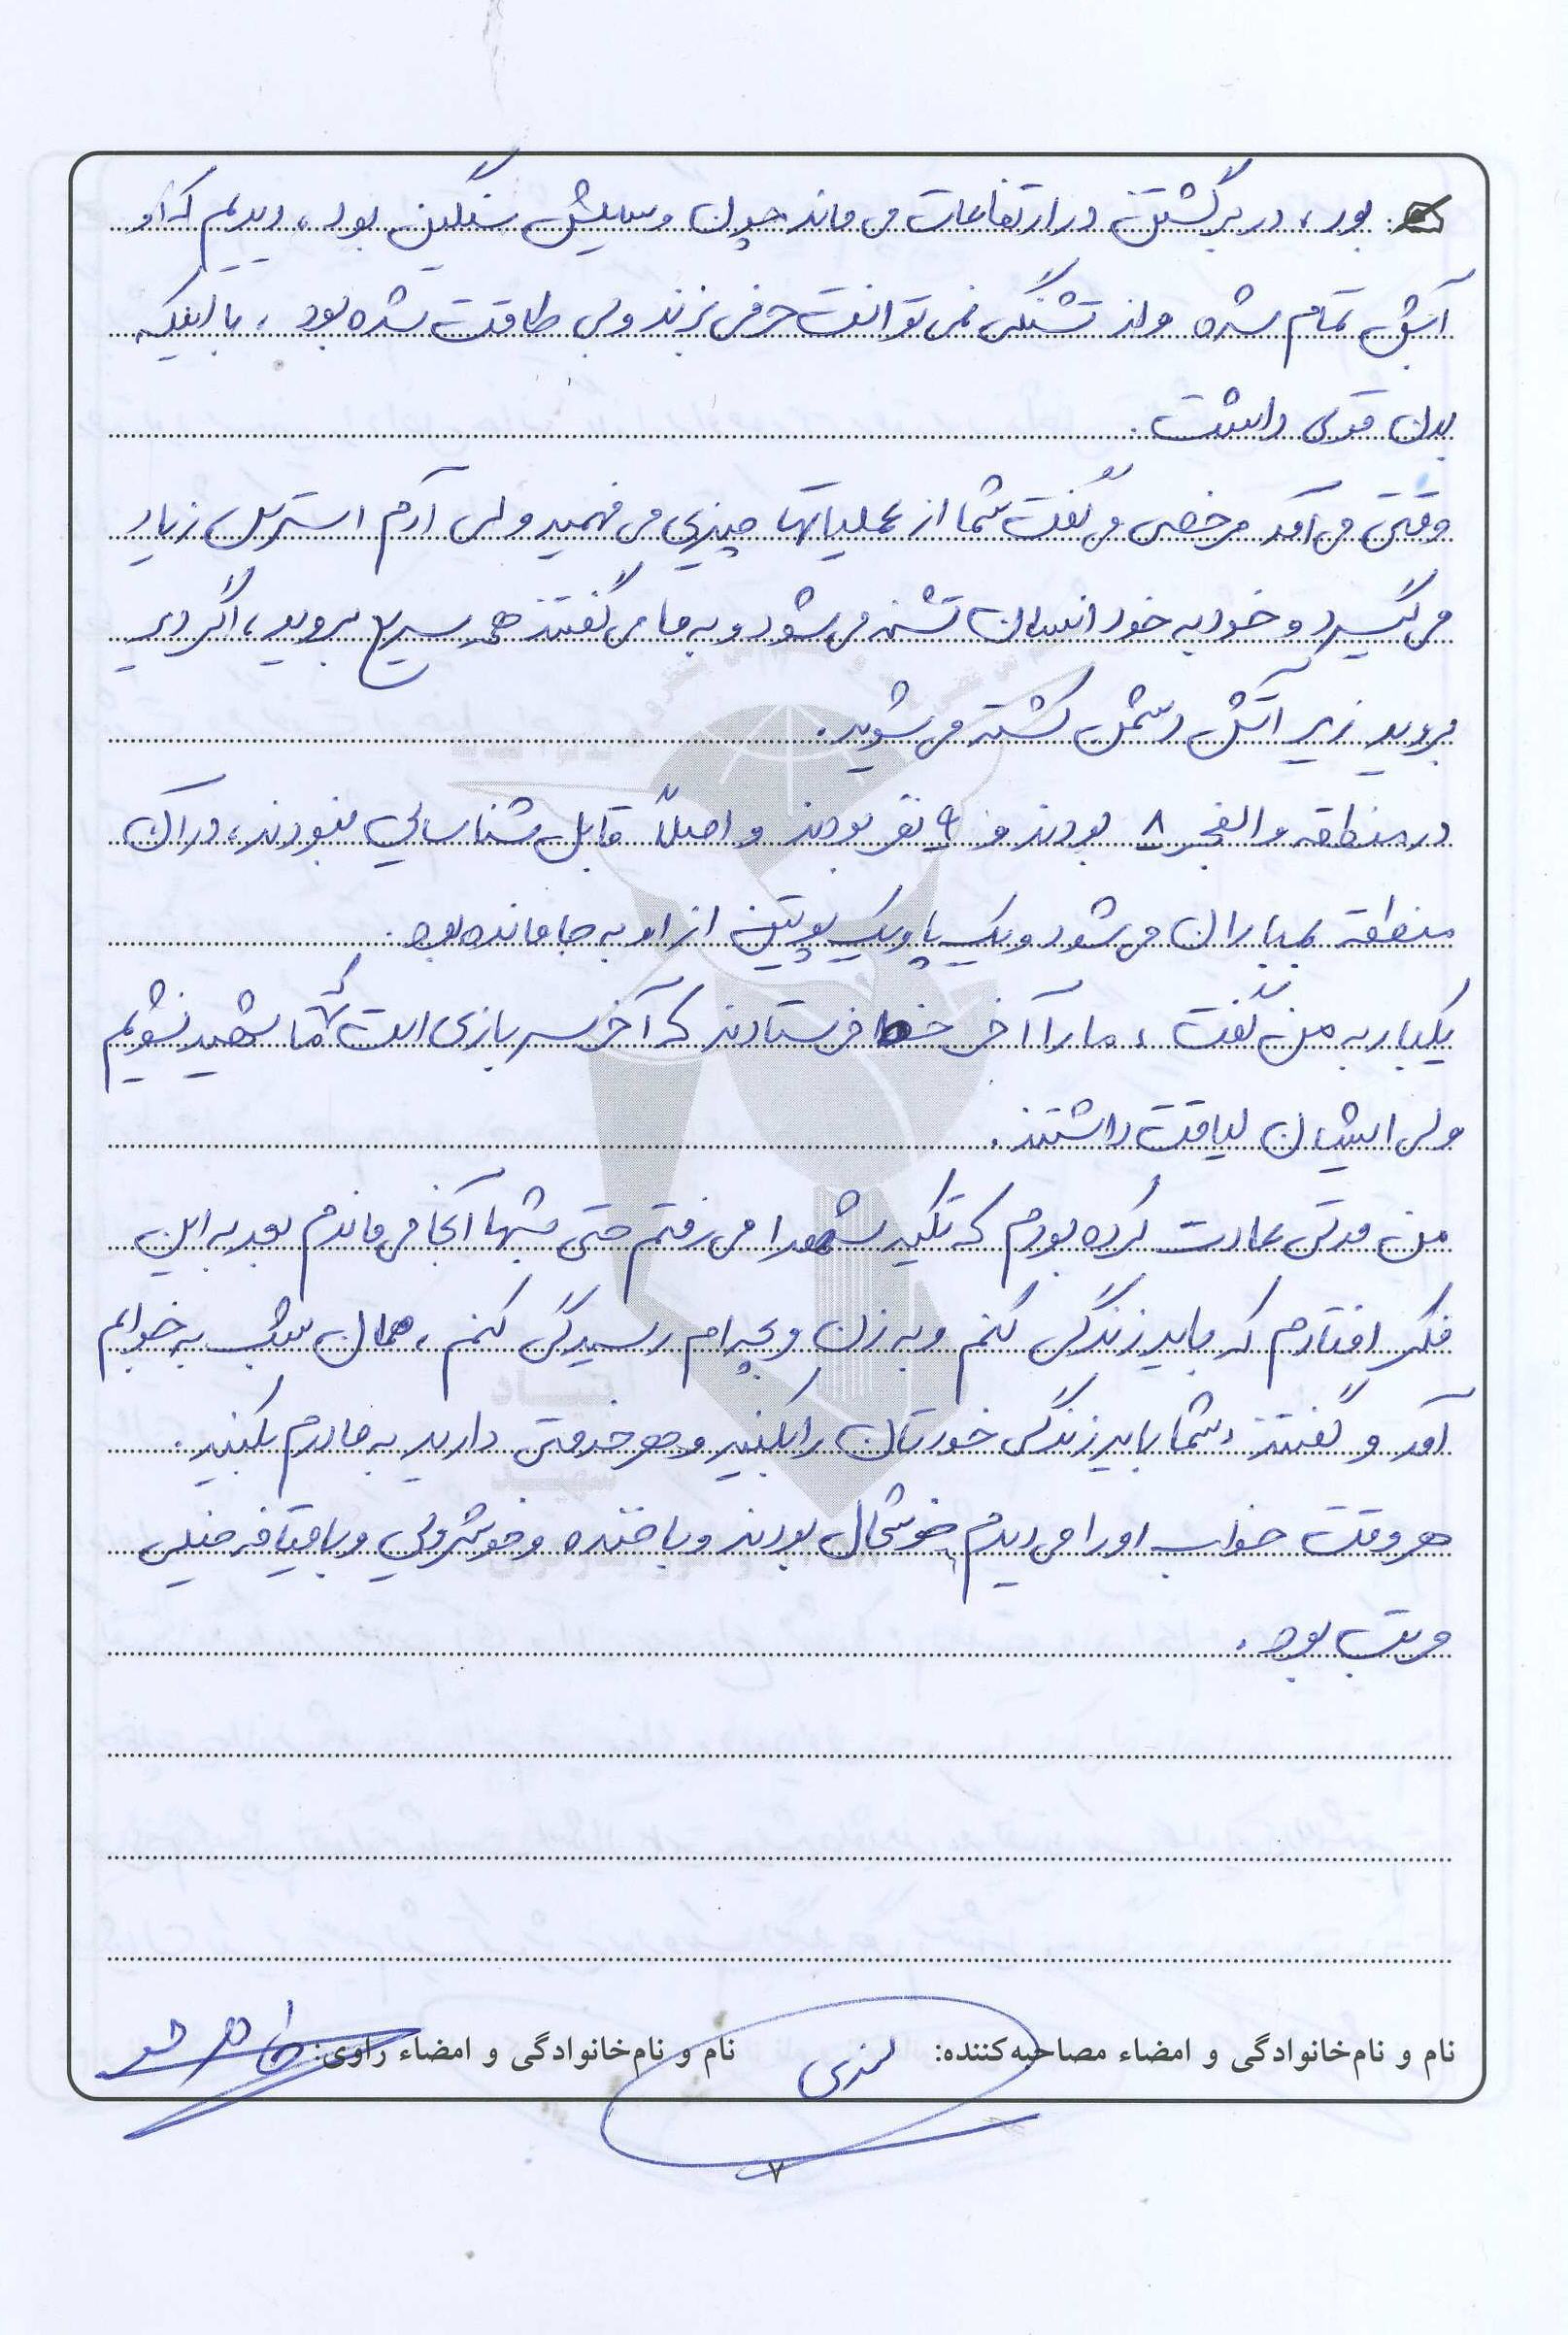 بود، در برگشتن در ارتفاعات می ماند چون وسایلش سنگین بود، دیدیم که او
آبش تمام شده و از تشنگی نمی توانست حرفی بزند و بی طاقت شده بود، با اینکه
بدن قوی داشت.
وقتی می آمد مرخصی می گفت شما از عملیاتها چیزی می فهمید ولی آدم استرس زیاد
می گیرد و خود به خود انسان تشنه می شود و به ما می گفتند همه سریع بروید، اگر دیر
بروید زیر آتش دشمن کشته می شوید.
در منطقه والفجر ۸ بودند و ۹ نفر بودند و اصلاً قابل شناسایی نبودند، در آن
منطقه بمباران می شود و یک پا و یک پوتین از او به جا مانده بود.
یکبار به من گفت، ما را آخر خط فرستادند که آخر سربازی است که ما شهید نشویم
ولی ایشان لیاقت داشتند.
من مدتی عادت کرده بودم که تکیه شهدا می رفتم حتی شبها آنجا می ماندم بعد به این
فکر افتادم که باید زندگی کنم و به زن و بچه ام رسیدگی کنم، همان شب به خوابم
آمد و گفتند، شما باید زندگی خودتان را بکنید و هر خدمتی دارید به مادرم بکنید.
هر وقت خواب او را می دیدم خوشحال بودند و با خنده و خوشرویی و با قیافه خیلی
مرتب بود.
نام و نام‌خانوادگی و امضاء مصاحبه‌کننده:
نام و نام‌خانوادگی و امضاء راوی:
۷
بنیاد
شهید